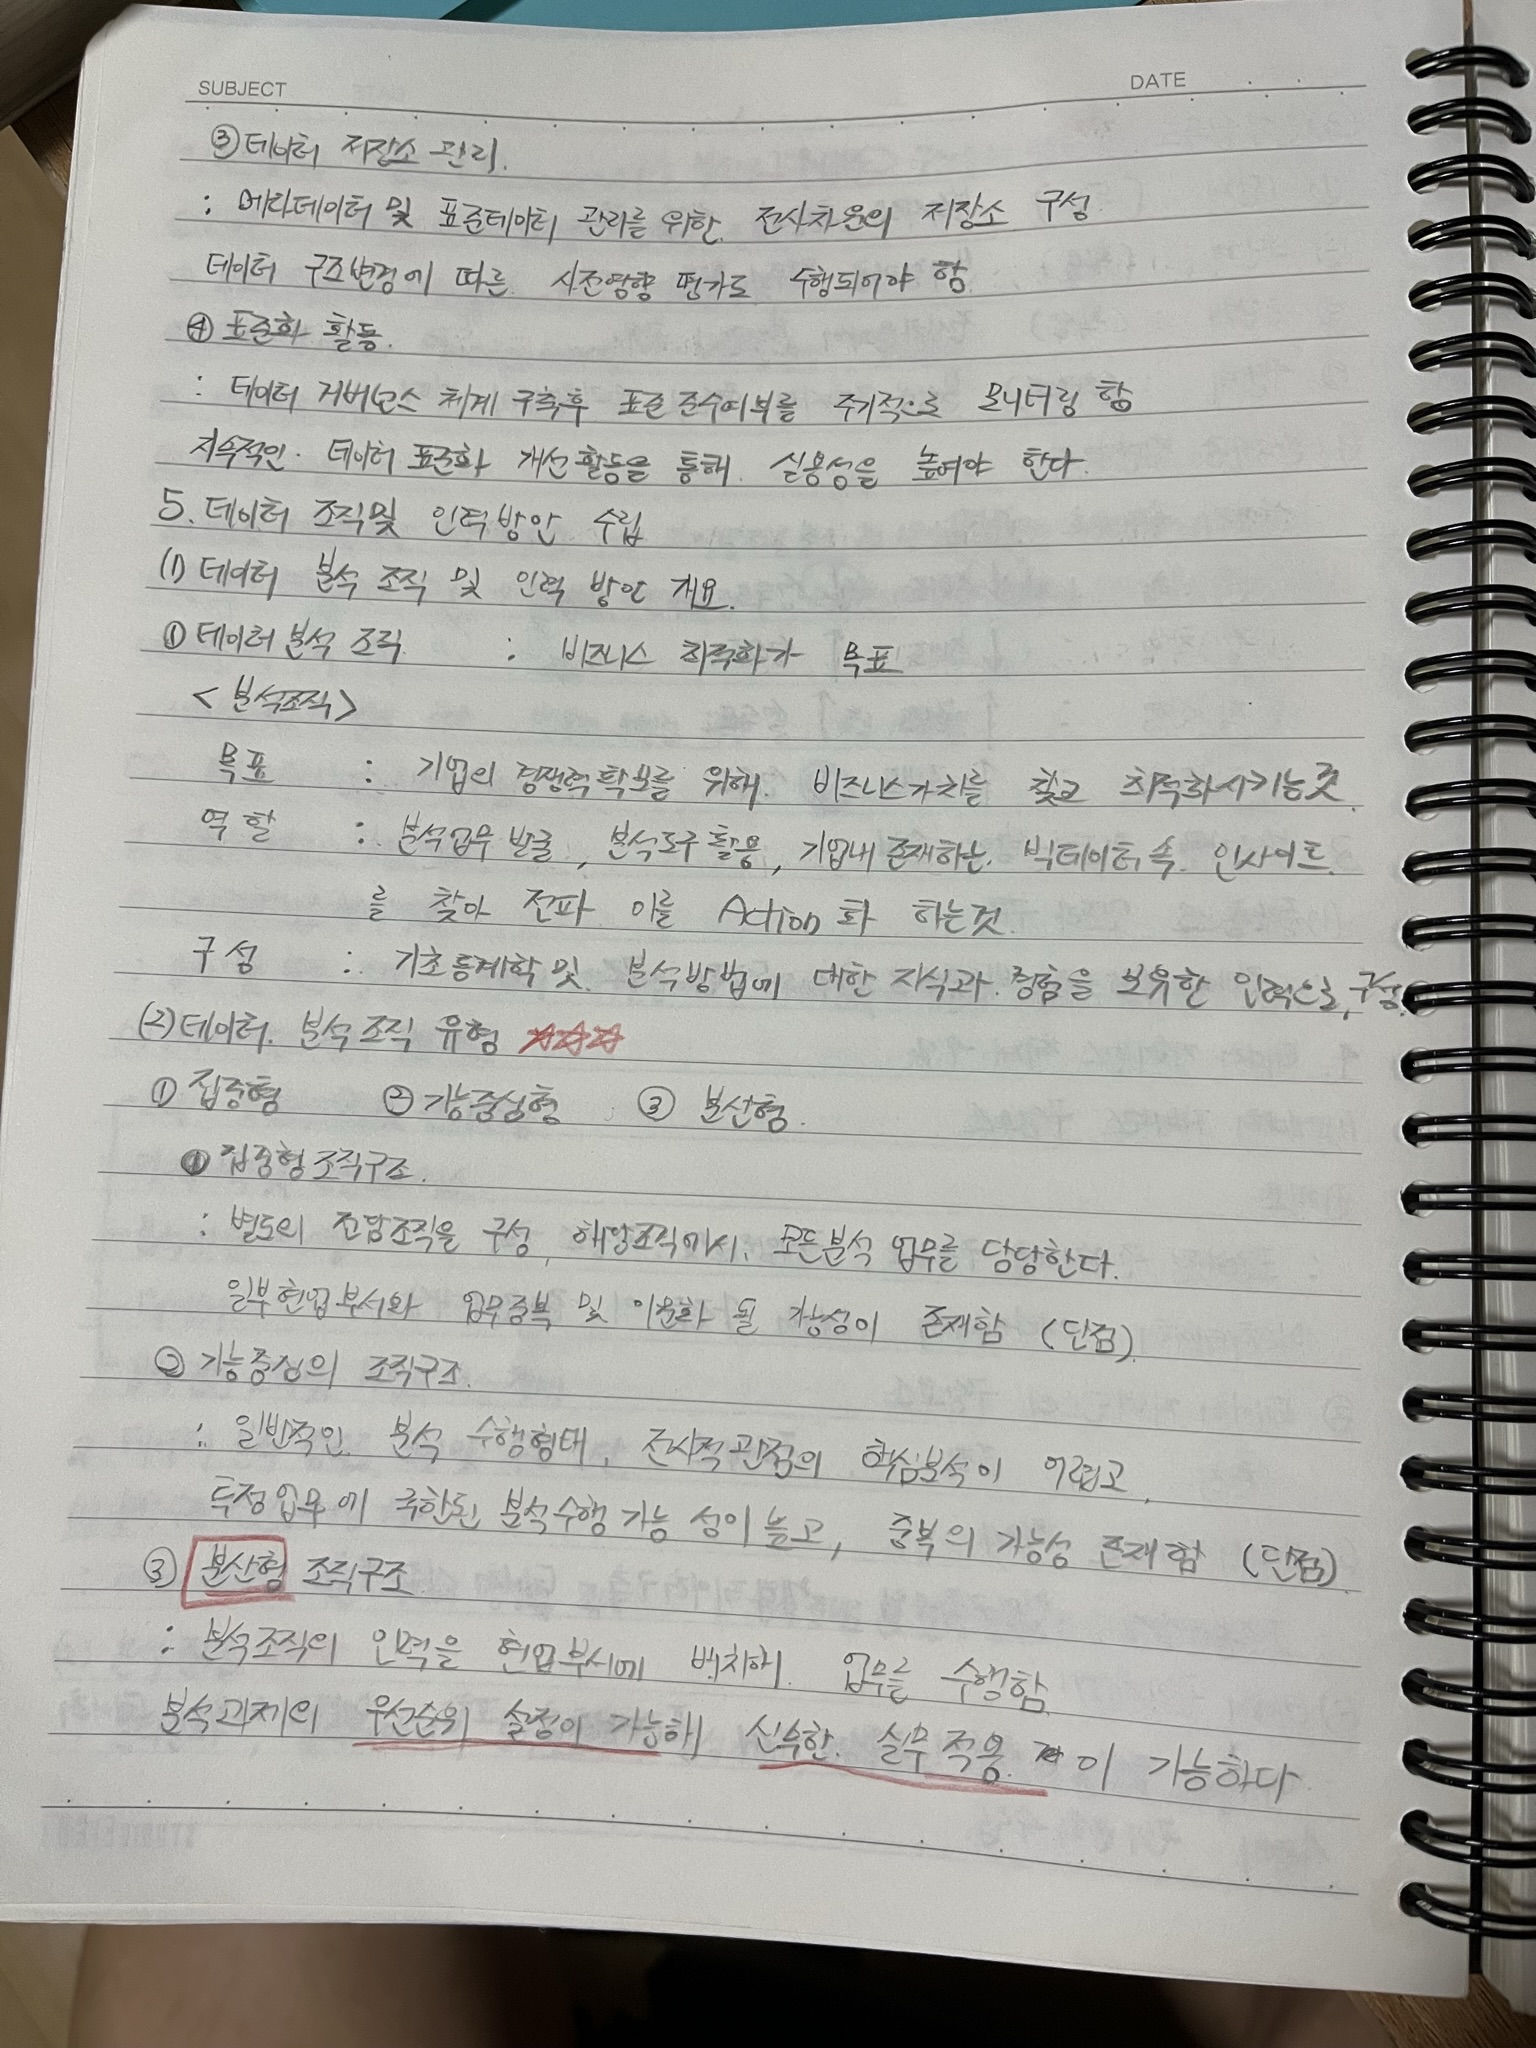 SUBJECT DATE
③ 데이터 저장소 관리.
: 메타데이터 및 표준데이터 관리를 위한 전사차원의 저장소 구성
데이터 구조변경에 따른 사전영향 평가도 수행되어야 함
④ 표준화 활동.
: 데이터 거버넌스 체계 구축후 표준 준수여부를 주기적으로 모니터링 함
지속적인 데이터 표준화 개선활동을 통해 실용성을 높여야 한다.
5. 데이터 조직및 인력방안 수립
(1) 데이터 분석 조직 및 인력 방안 개요.
① 데이터 분석 조직 : 비즈니스 최적화가 목표
<분석조직>
목표 : 기업의 경쟁력확보를 위해 비즈니스가치를 찾고 최적화시키는것.
역할 : 분석업무 발굴, 분석도구 활용, 기업내 존재하는 빅데이터 속 인사이트
를 찾아 전파 이를 Action화 하는것.
구성 : 기초통계학 및 분석방법에 대한 지식과 경험을 보유한 인력으로 구성.
(2) 데이터 분석 조직 유형 ☆☆☆
① 집중형 ② 기능중심형 ③ 분산형.
① 집중형 조직구조.
: 별도의 전담조직을 구성, 해당조직에서 모든분석 업무를 담당한다.
일부현업부서와 업무중복 및 이원화 될 가능성이 존재함 (단점)
② 기능중심의 조직구조.
: 일반적인 분석 수행형태, 전사적관점의 핵심분석이 어렵고,
특정업무에 국한된 분석수행 가능성이 높고, 중복의 가능성 존재함 (단점)
③ 분산형 조직구조
: 분석조직의 인력을 현업부서에 배치해 업무를 수행함
분석과제의 우선순위 설정이 가능해 신속한 실무적용이 가능하다